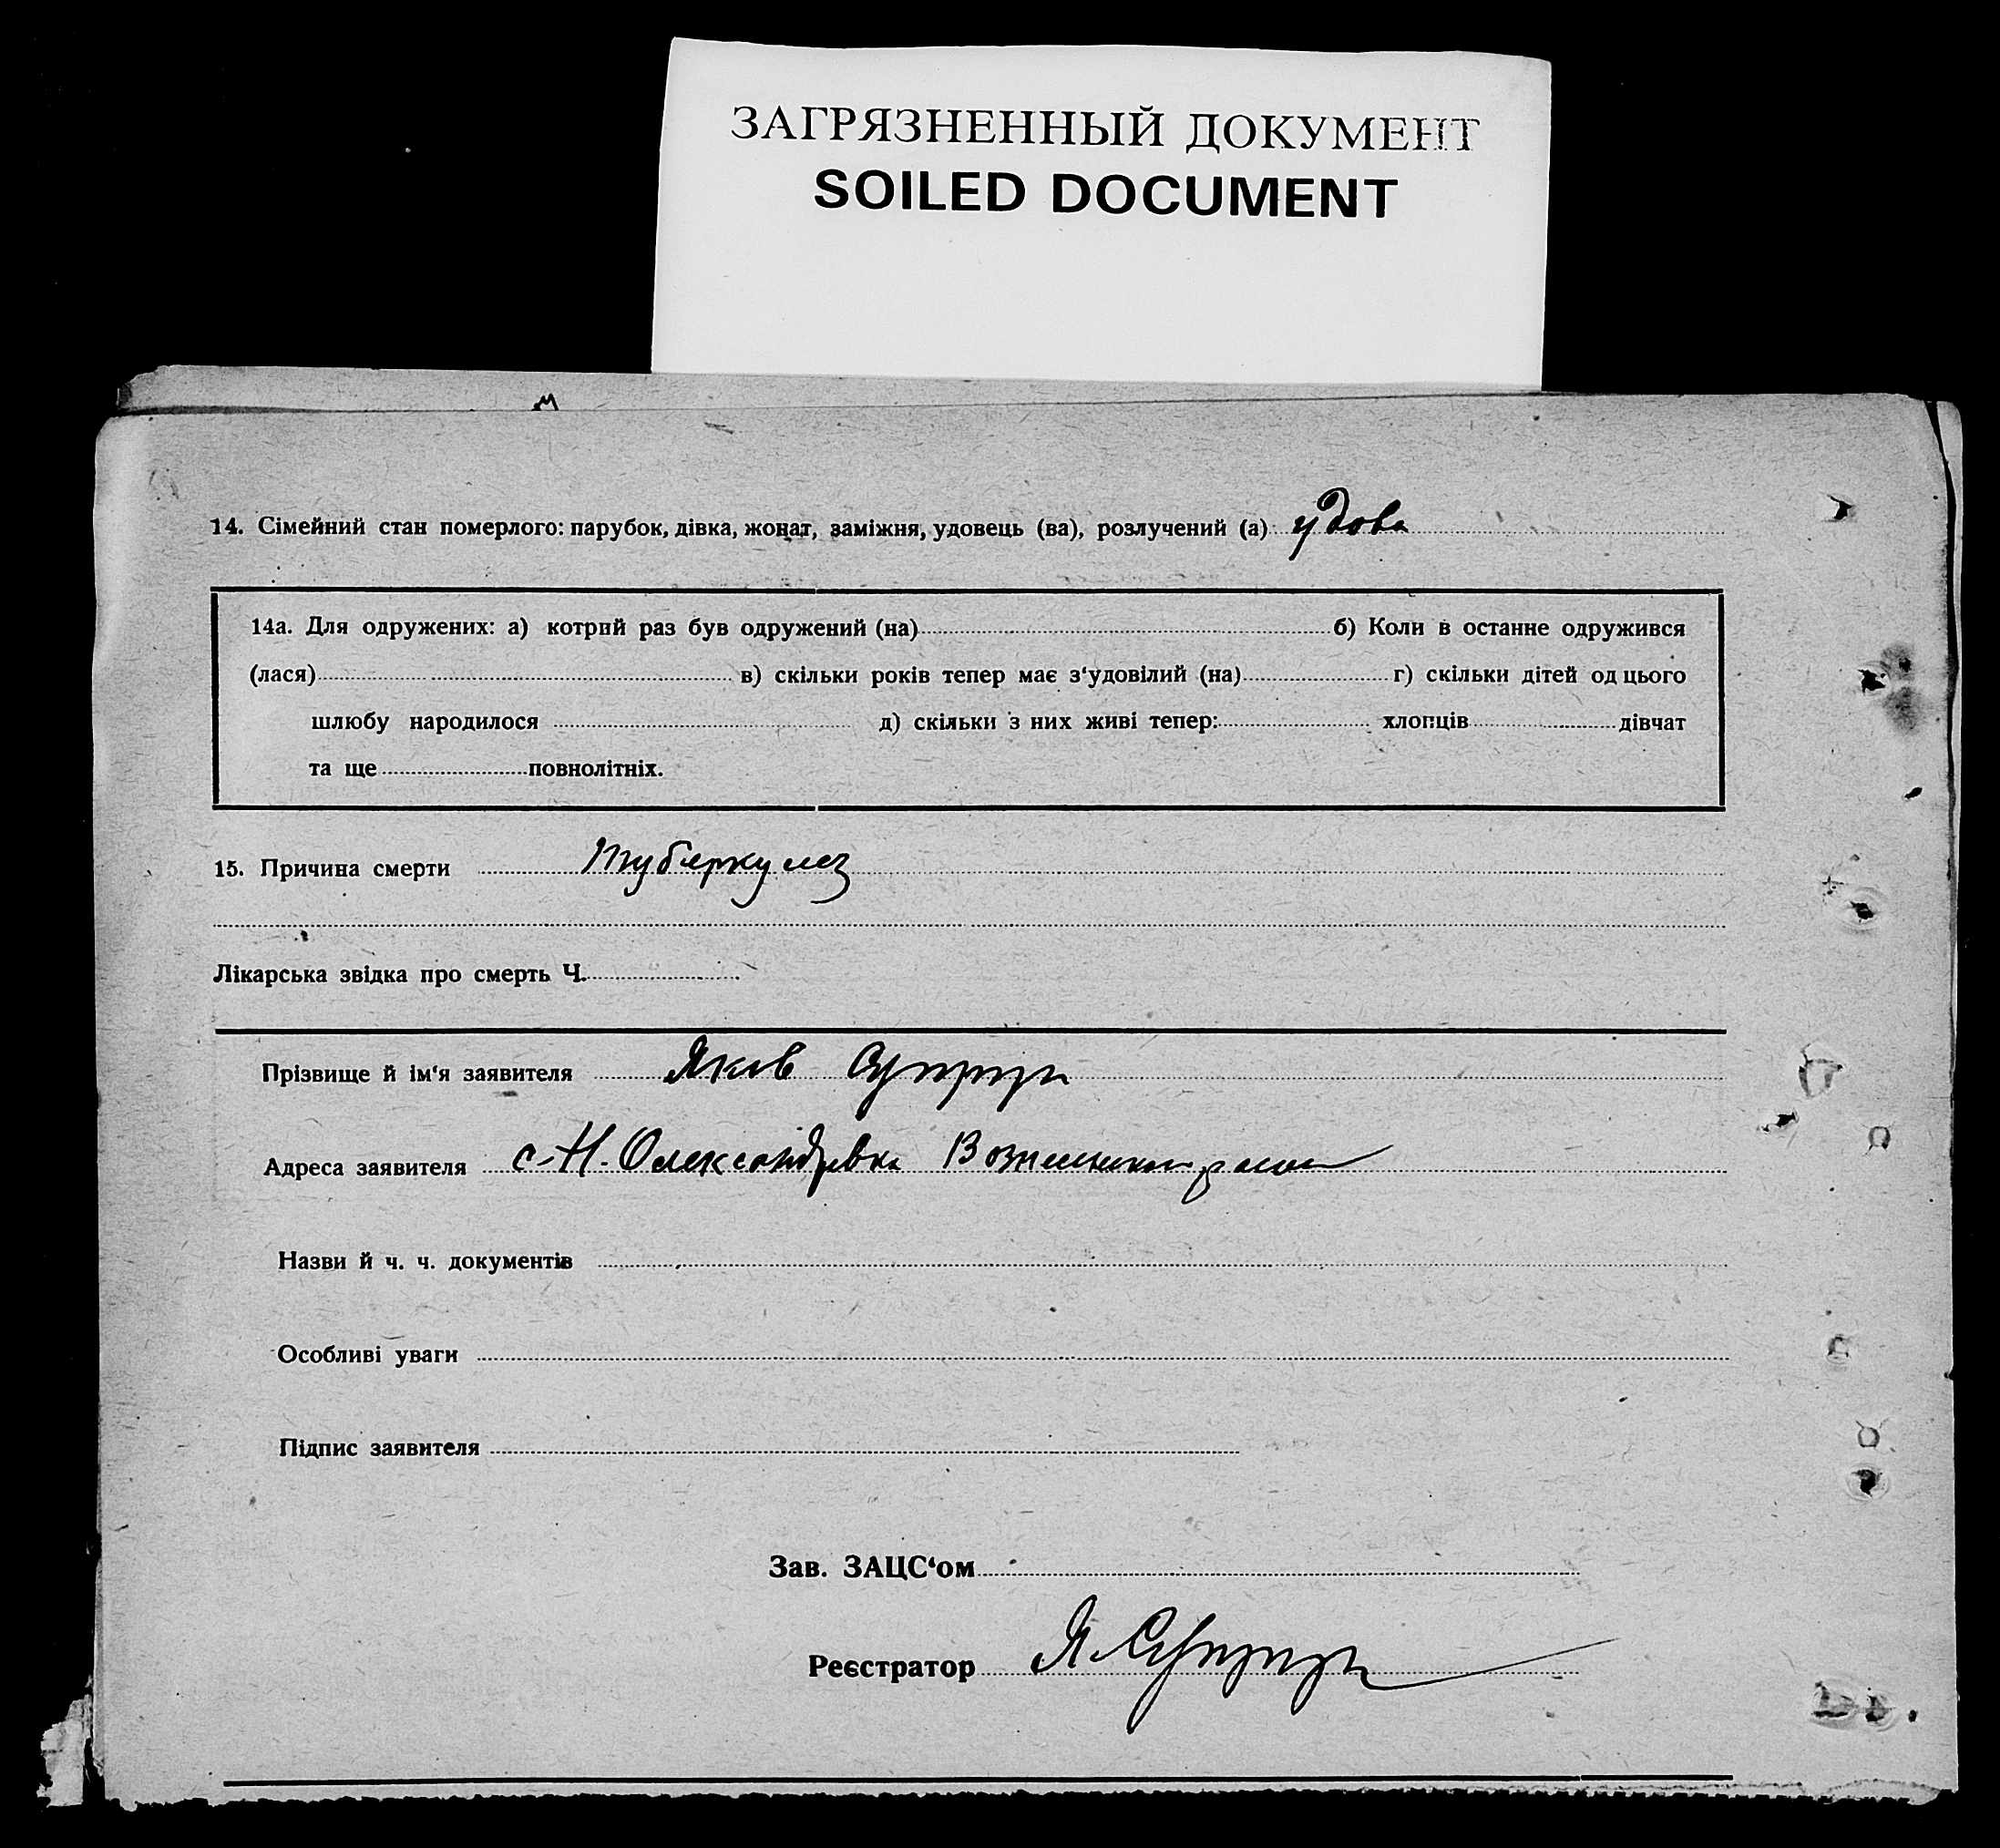 ЗАГРЯЗНЕННЫЙ ДОКУМЕНТ
SOILED DOCUMENT
14. Сімейний стан померлого: парубок, дівка, жонат, заміжня, удовець (ва), розлучений (а) удова
14а. Для одружених: а) котрий раз був одружений (на) б) Коли в останне одружився
(лася) в) скільки років тепер має з‘удовілий (на) г) скільки дітей од цього
шлюбу народилося д) скільки з них живі тепер: хлопців дівчат
та ще повнолітніх.
15. Причина смерти Туберкулез
Лікарська звідка про смерть Ч.
Прізвище й ім‘я заявителя Яков Супрун
Адреса заявителя с-Н. Олександрвка
Назви й ч. ч. документів
Особливі уваги
Підпис заявителя
Зав. ЗАЦС‘ом
Реєстратор Я. Супрун